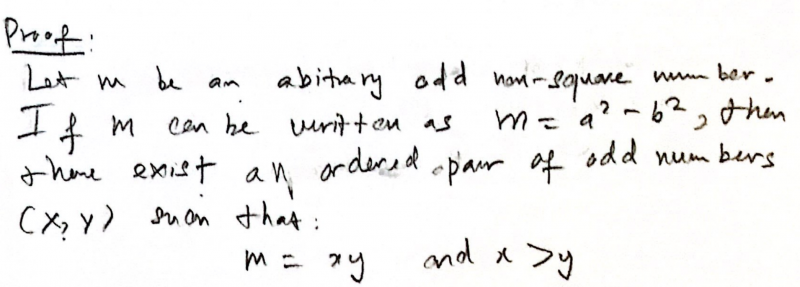 Proof:
Let m be an abitrary odd non-square number.
If m can be written as m = a² - b², then
there exist an ordered pair of odd numbers
(x, y) such that:
m = xy and x > y